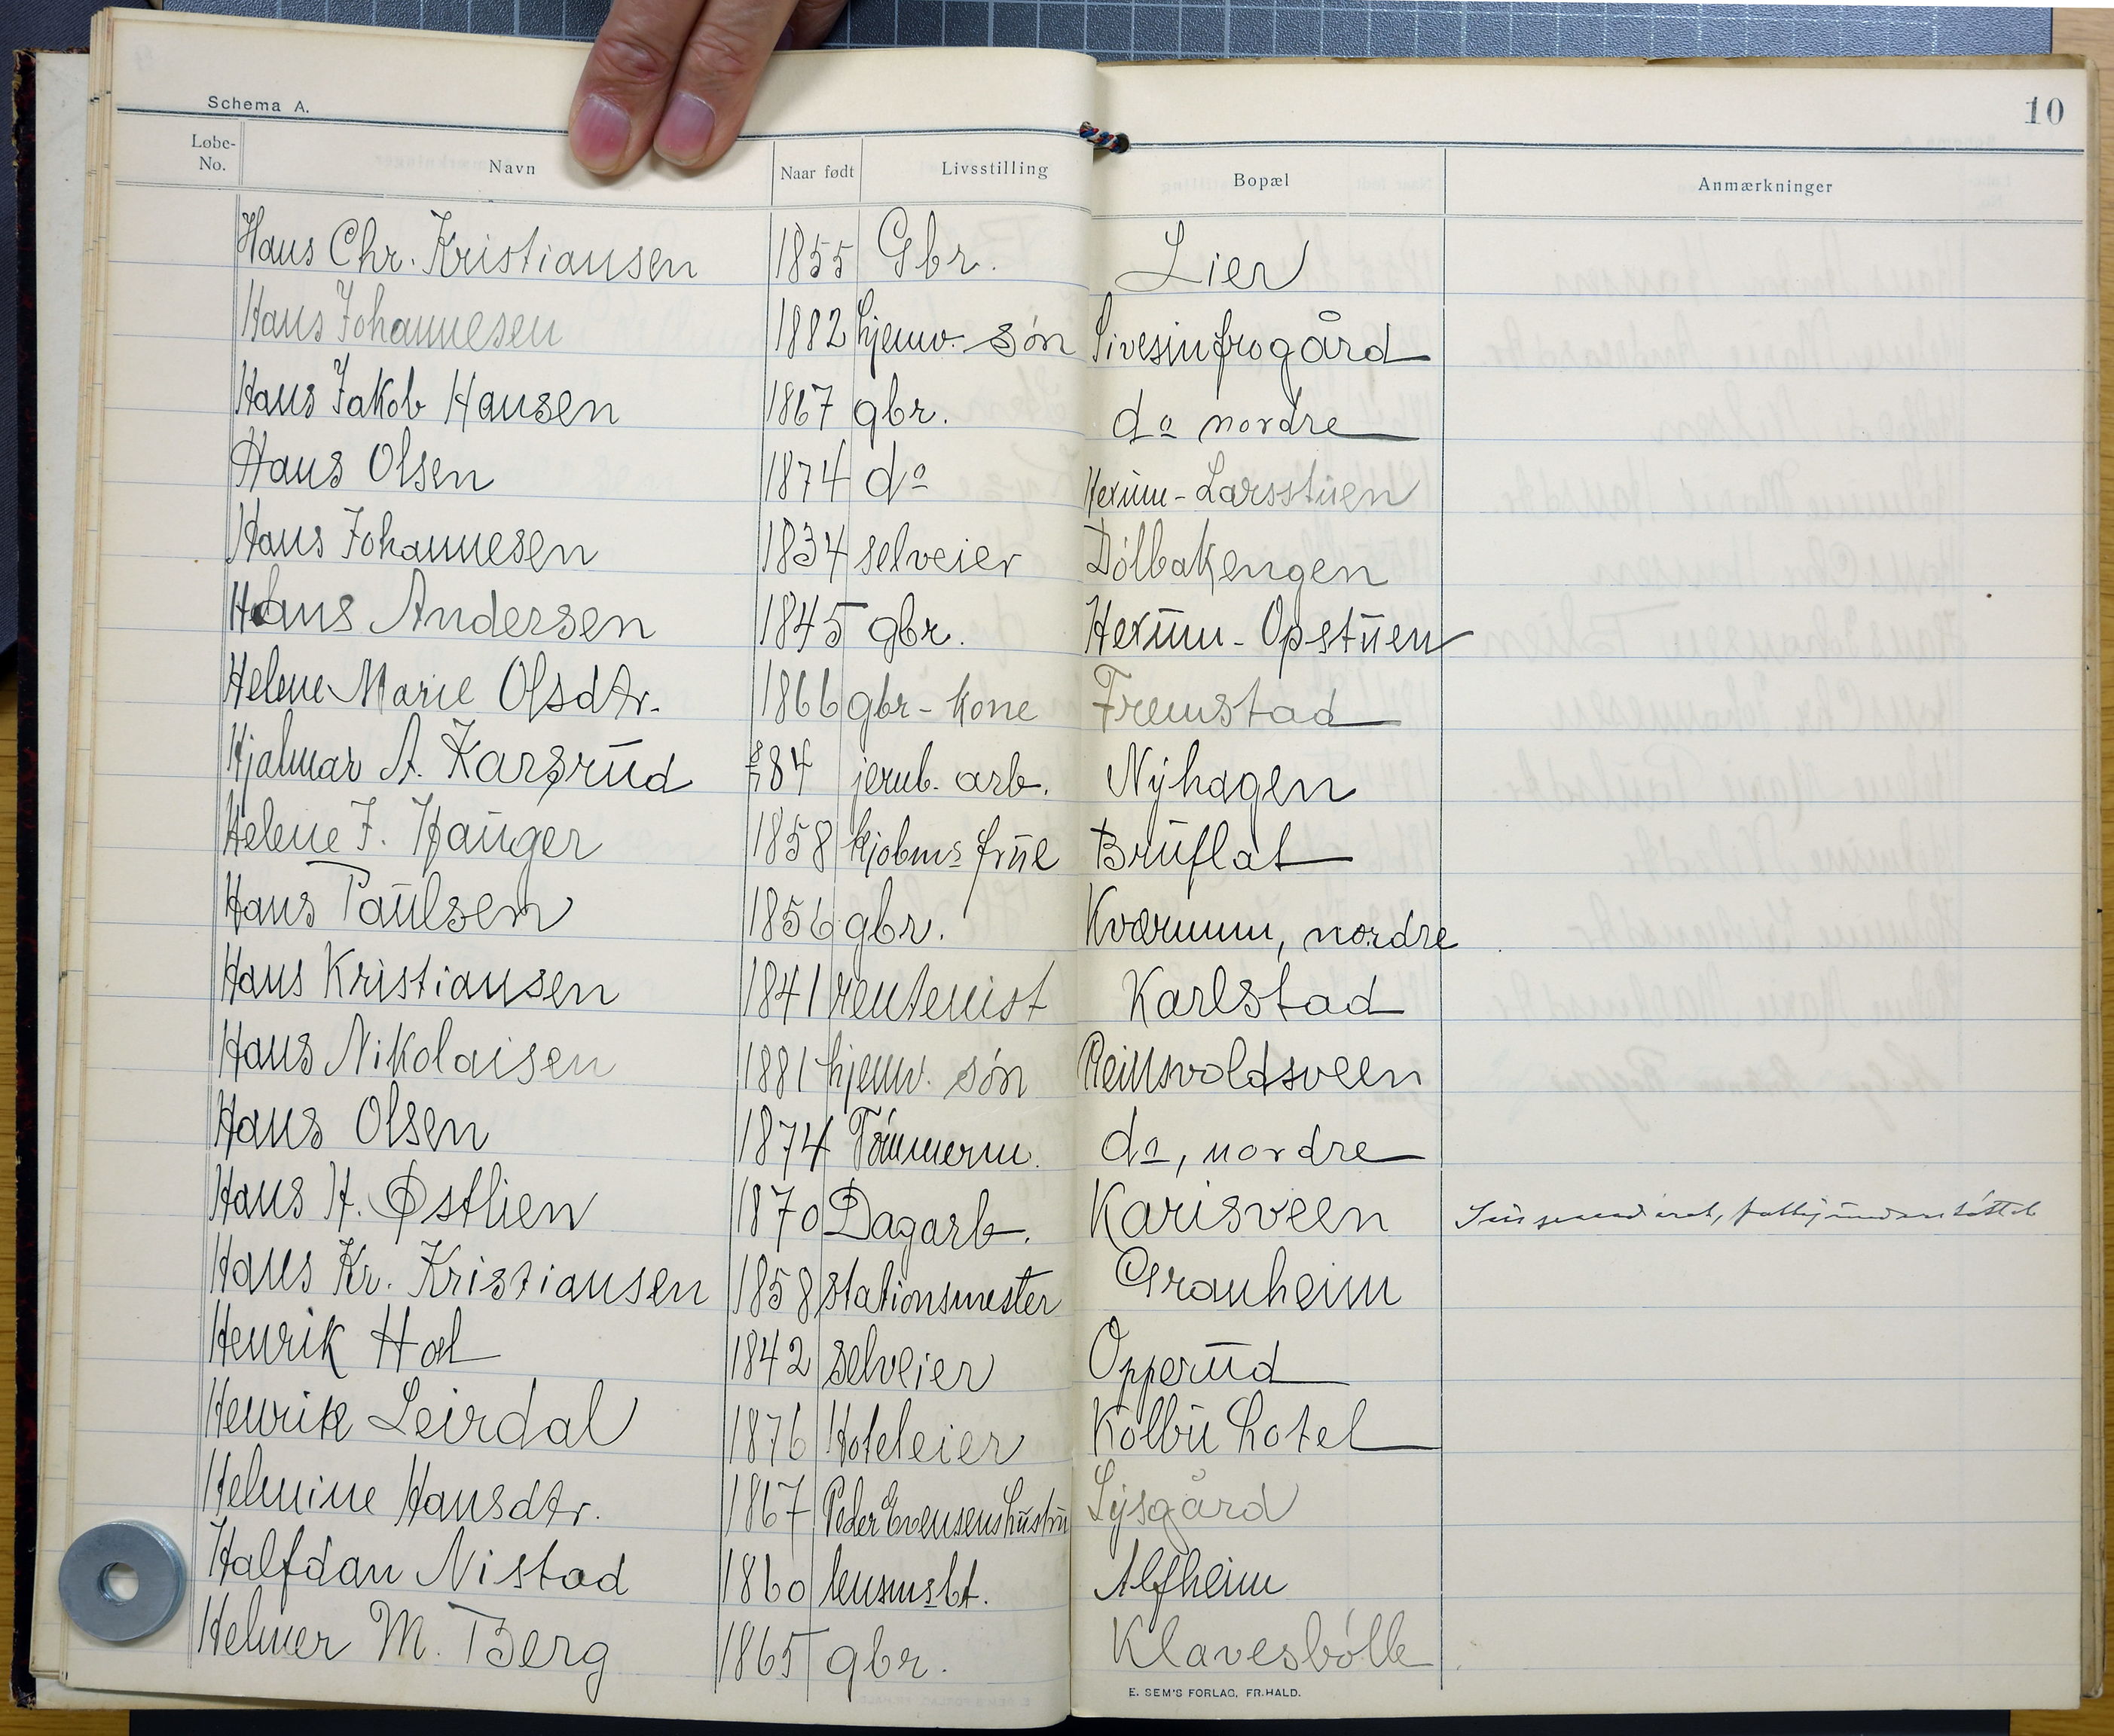 Schema A.
10
Løbe-No. Navn Naar født Livsstilling Bopæl Anmærkninger
Hans Chr. Kristiansen 1855 Gbr. Lier
Hans Johannesen 1882 hjemv. søn Sivesinfrogård
Hans Jakob Hansen 1867 gbr. do nordre
Hans Olsen 1874 do Hexum-Larsstuen
Hans Johannesen 1834 selveier Dølbakengen
Hans Andersen 1845 gbr. Hexum-Opstuen
Helene Marie Olsdtr. 1866 gbr-kone Fremstad
Hjalmar A. Karsrud 84 jernb. arb. Nyhagen
Helene J. Hauger 1858 kjøbms frue Bruflat
Hans Paulsen 1856 gbr. Kværnum, nordre
Hans Kristiansen 1841 rentenist Karlstad
Hans Nikolaisen 1881 hjemv. søn Reinsvoldsveen
Hans Olsen 1874 Tømmerm. do, nordre
Hans H. Østlien 1870 Dagarb. Karisveen Suspenderet, fattigunderstøttet
Hans Kr. Kristiansen 1858 stationsmester Granheim
Henrik Hoel 1842 selveier Opperud
Henrik Leirdal 1876 Hoteleier Kolbu hotel
Helmine Hansdtr. 1867 Peder Evensens hustru Lysgård
Halfdan Nistad 1860 lensmsbt. Alfheim
Helmer M. Berg 1865 gbr. Klavesbølle
E. SEM'S FORLAG, FR.HALD.